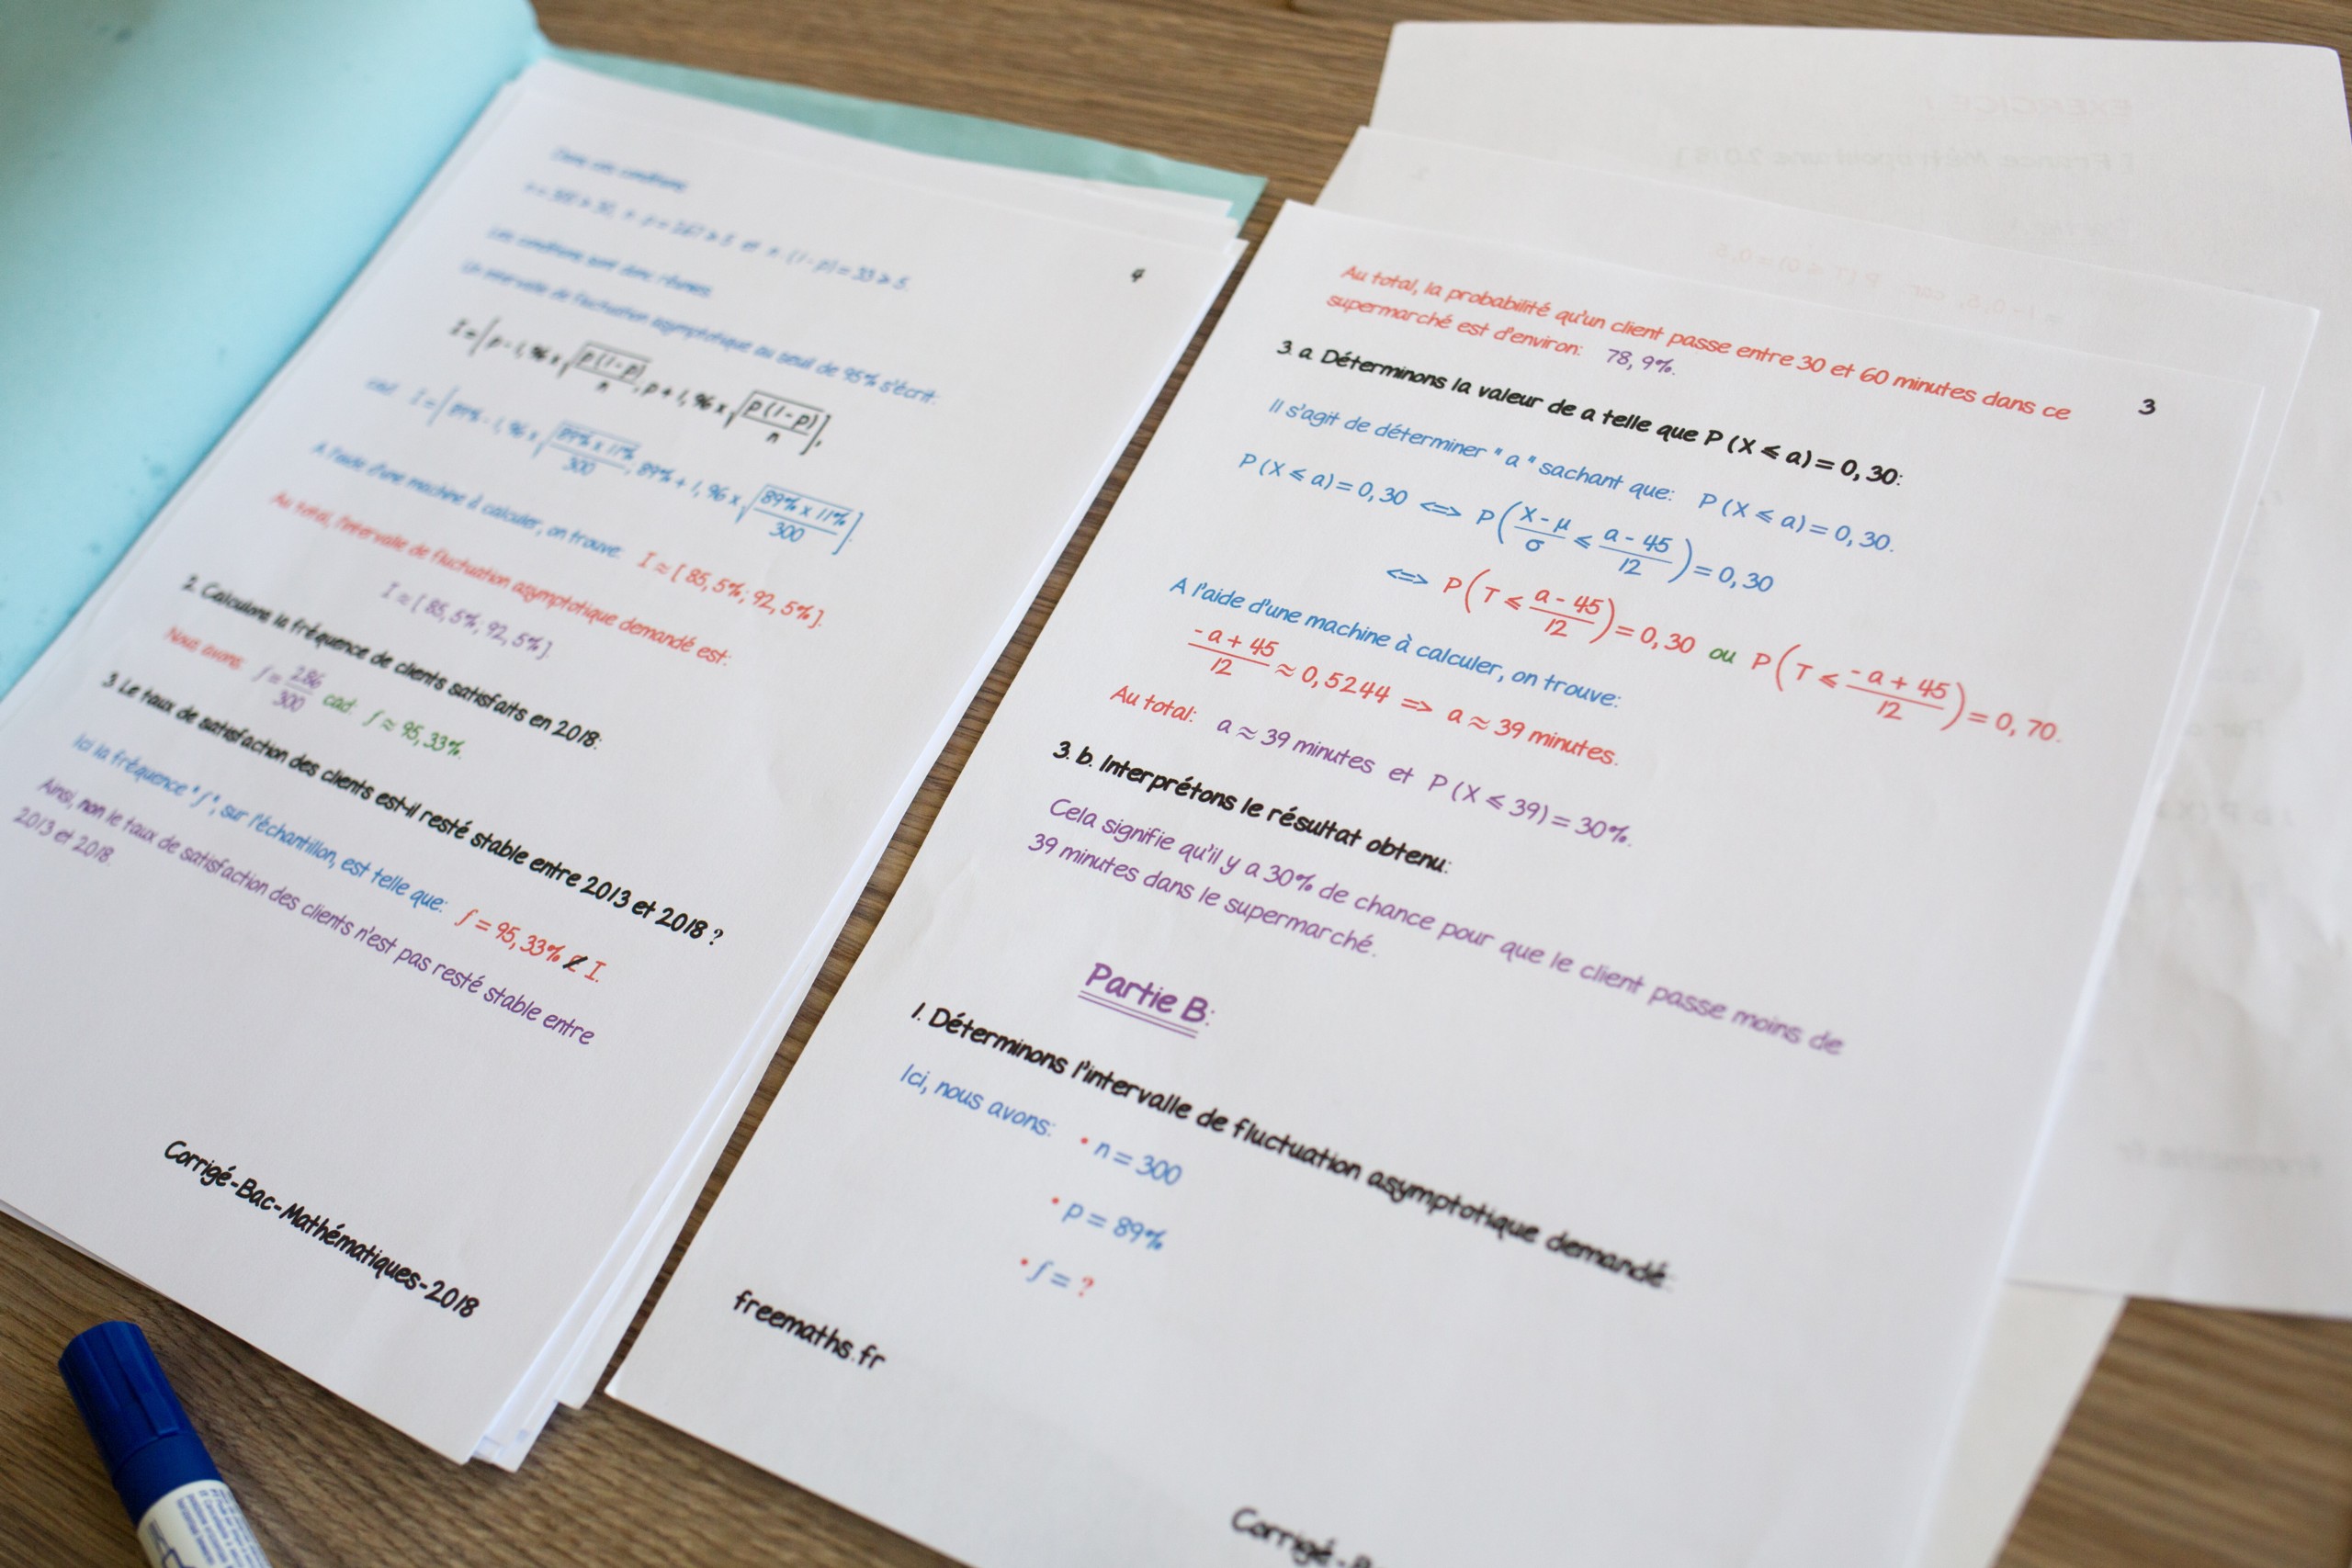 4
Dans ces conditions:
n = 300 ≥ 30, n . p = 267 ≥ 5 et n . (1 - p) = 33 ≥ 5.
Les conditions sont donc réunies.
Un intervalle de fluctuation asymptotique au seuil de 95% s'écrit:
I = [ p - 1, 96 x √(p (1 - p) / n) , p + 1, 96 x √(p (1 - p) / n) ],
cad: I = [ 89% - 1, 96 x √(89% x 11% / 300) , 89% + 1, 96 x √(89% x 11% / 300) ].
A l'aide d'une machine à calculer, on trouve: I ≈ [ 85, 5%; 92, 5% ].
Au total, l'intervalle de fluctuation asymptotique demandé est:
I ≈ [ 85, 5%; 92, 5% ].
2. Calculons la fréquence de clients satisfaits en 2018:
Nous avons: f = 286 / 300 cad: f ≈ 95, 33%.
3. Le taux de satisfaction des clients est-il resté stable entre 2013 et 2018 ?
Ici la fréquence " f ", sur l'échantillon, est telle que: f = 95, 33% ∉ I.
Ainsi, non le taux de satisfaction des clients n'est pas resté stable entre
2013 et 2018.
Corrigé - Bac - Mathématiques - 2018
3
Au total, la probabilité qu'un client passe entre 30 et 60 minutes dans ce
supermarché est d'environ: 78, 9%.
3. a. Déterminons la valeur de a telle que P ( X ≤ a ) = 0, 30:
Il s'agit de déterminer " a " sachant que: P ( X ≤ a ) = 0, 30.
P ( X ≤ a ) = 0, 30 <=> P ( (X - μ) / σ ≤ (a - 45) / 12 ) = 0, 30
<=> P ( T ≤ (a - 45) / 12 ) = 0, 30 ou P ( T ≤ (- a + 45) / 12 ) = 0, 70.
A l'aide d'une machine à calculer, on trouve:
(- a + 45) / 12 ≈ 0, 5244 => a ≈ 39 minutes.
Au total: a ≈ 39 minutes et P ( X ≤ 39 ) = 30%.
3. b. Interprétons le résultat obtenu:
Cela signifie qu'il y a 30% de chance pour que le client passe moins de
39 minutes dans le supermarché.
Partie B:
1. Déterminons l'intervalle de fluctuation asymptotique demandé:
Ici, nous avons: • n = 300
• p = 89%
• f = ?
freemaths.fr
Corrigé -